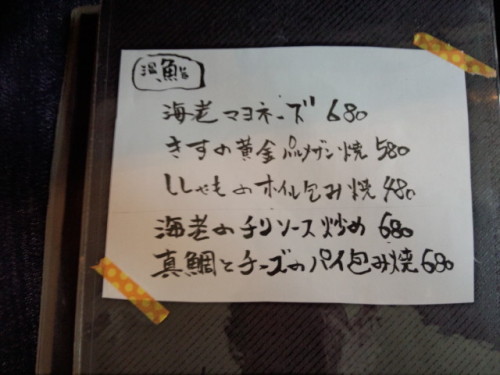 温鮨
海老マヨネーズ 680
きすの黄金パルメザン焼 580
ししゃものホイル包み焼 480
海老のチリソース炒め 680
真鯛とチーズのパイ包み焼 680